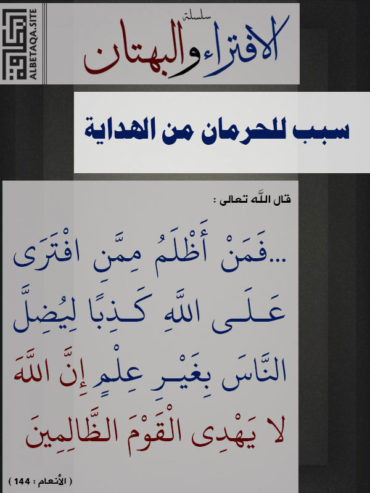 سلسلة
الافتراء والبهتان
البطاقة
ALBETAQA.SITE
سبب للحرمان من الهداية
قال الله تعالى :
...فَمَنْ أَظْلَمُ مِمَّنِ افْتَرَى
عَلَى اللَّهِ كَذِبًا لِيُضِلَّ
النَّاسَ بِغَيْرِ عِلْمٍ إِنَّ اللَّهَ
لا يَهْدِى الْقَوْمَ الظَّالِمِينَ
( الأنعام : 144 )